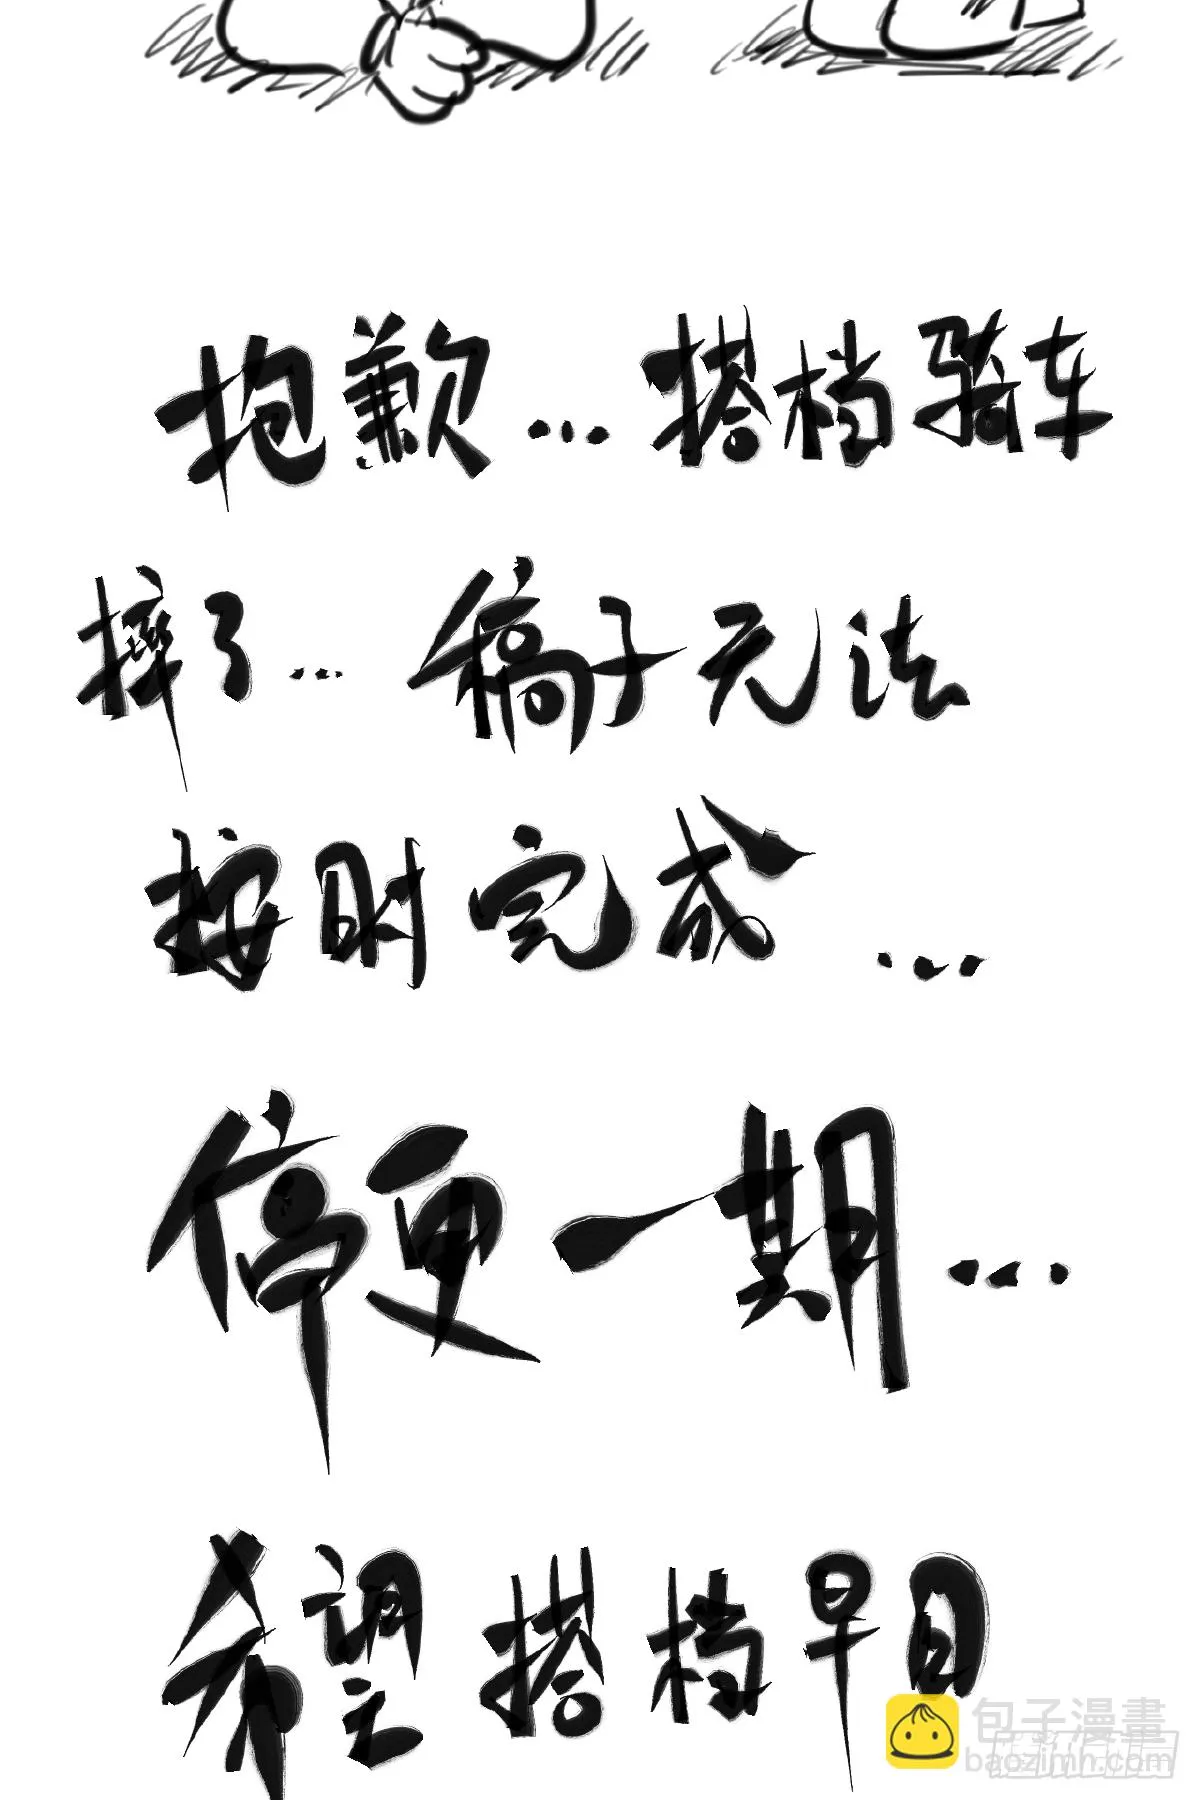 抱歉…搭档骑车
摔了…稿子无法
按时完成…
停更一期…
希望搭档早日
包子漫畫
baozimh.com